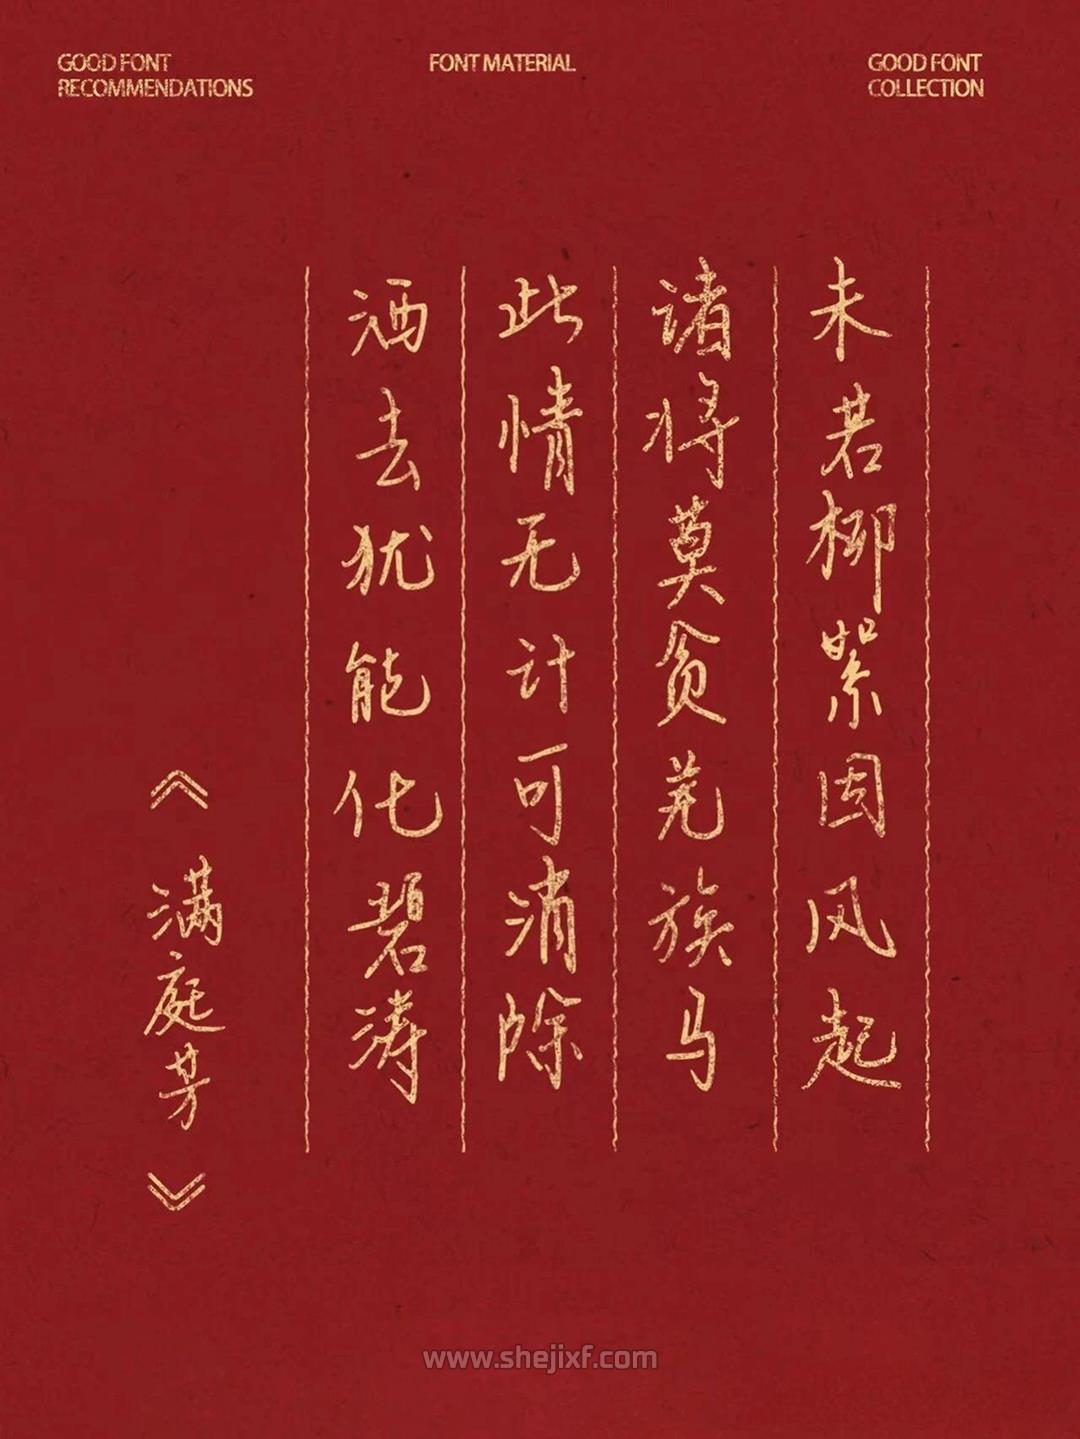 GOOD FONT
RECOMMENDATIONS
FONT MATERIAL
GOOD FONT
COLLECTION
未若柳絮因风起
诸将莫贪羌族马
此情无计可消除
洒去犹能化碧涛
《满庭芳》
www.shejixf.com